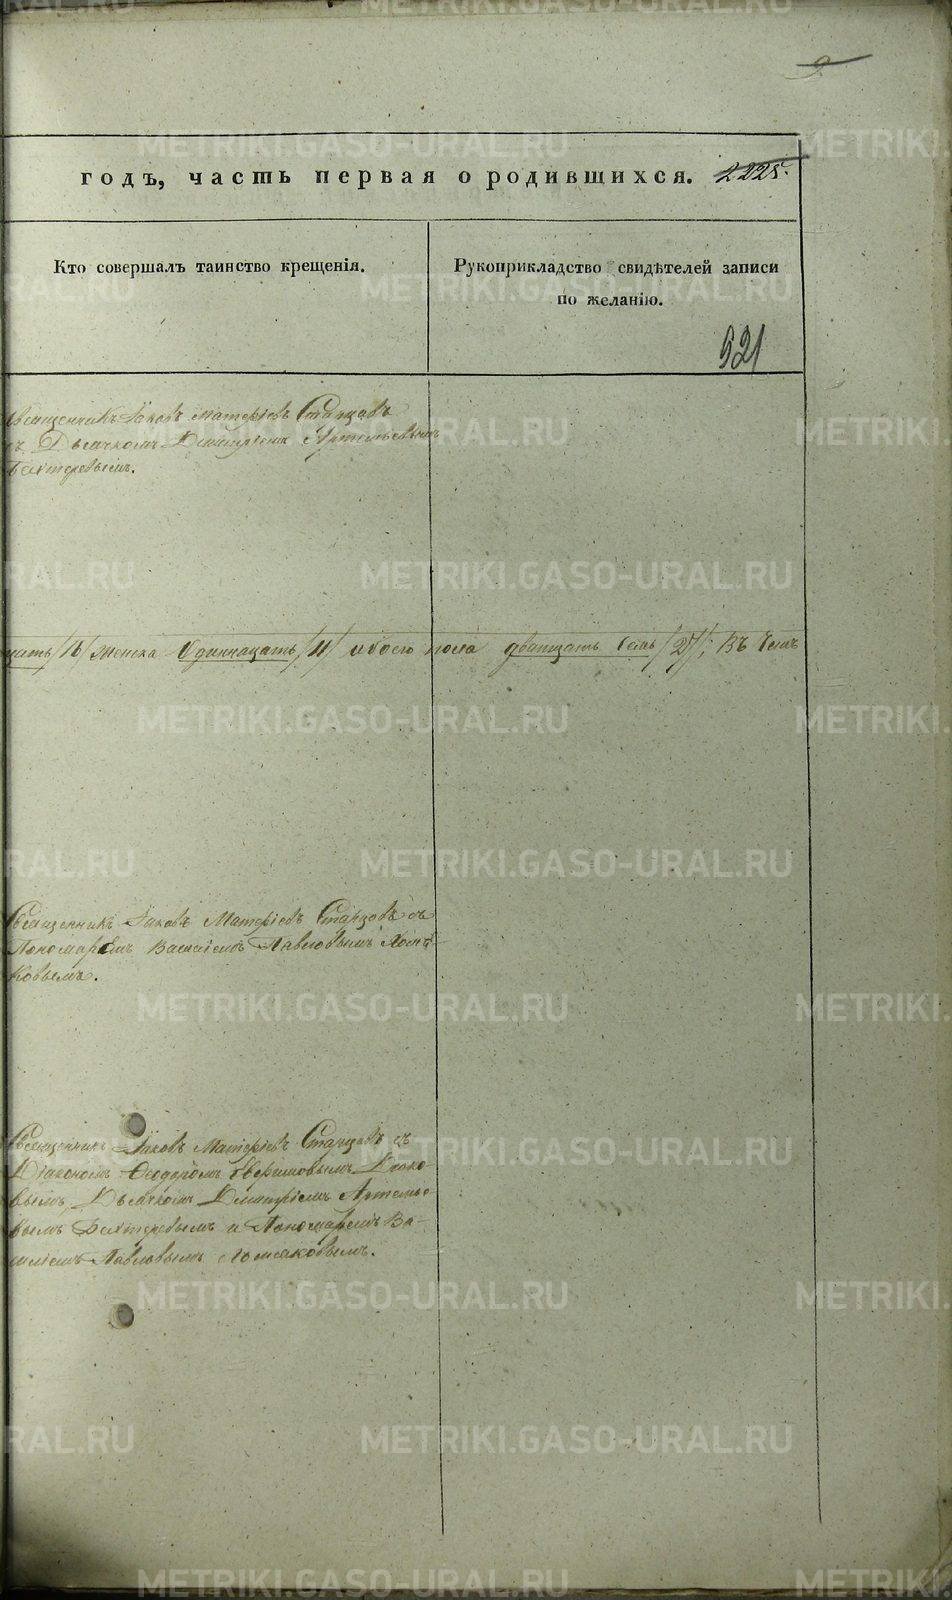 9
годъ, часть первая о родившихся. 2225.
Кто совершалъ таинство крещенія.
Рукоприкладство свидѣтелей записи
по желанію.
521
Священникъ Іаковъ Матѳіевъ Старцовъ
съ Дьячкомъ Димитріемъ Артемьевымъ
Бехтеревымъ.
цать /16/ женска Одиннацать /11/ обоего пола дватцать семь /27/; Въ чемъ
Священникъ Іаковъ Матѳіевъ Старцовъ съ
Пономаремъ Василіемъ Павловымъ
ковымъ.
Священникъ Іаковъ Матѳіевъ Старцовъ съ
Діакономъ Ѳеодоромъ
вымъ, Дьячкомъ Димитріемъ Артемье-
вымъ Бехтеревымъ и Пономаремъ Ва-
силіемъ Павловымъ
METRIKI.GASO-URAL.RU